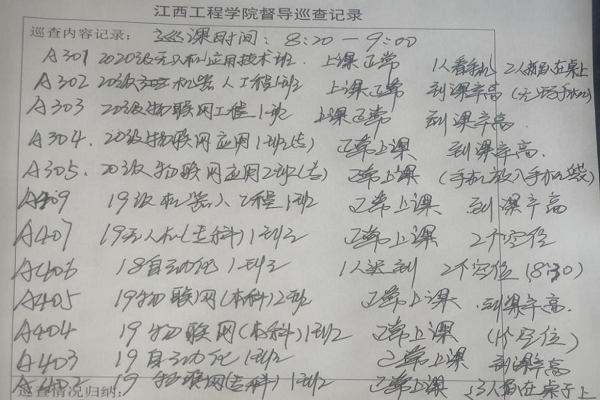 江西工程学院督导巡查记录
巡查内容记录: 巡课时间: 8:20-9:00
A301 2020级无人机应用技术班. 上课正常 1人看手机 2人趴在桌上
A302 20级机器人工程1班 上课正常 到课率高
A303 20级物联网工程1班 上课正常 到课率高
A304. 20级物联网应用1班(专) 正常上课 到课率高.
A305. 20级物联网应用2班(专) 正常上课 (手机放入手机袋)
A409 19级机器人工程1班 正常上课 到课率高
A407 19无人机(专科)1班 正常上课 2个空位
A406 18自动化1班 1人迟到 2个空位 (8:30)
A405 19物联网(本科)2班 正常上课 到课率高.
A404 19物联网(本科)1班 正常上课 (1个空位)
A403 19自动化1班 正常上课 到课率高
A402 19物联网(专科)1班 正常上课 (3人趴在桌子上
巡查情况归纳: